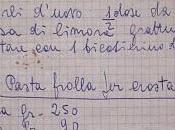 rli d'uovo 1/2 dose da
sa di limone grattu
tare con 1 bicchierino d
Pasta frolla per crosta
a gr. 250
gr. 90